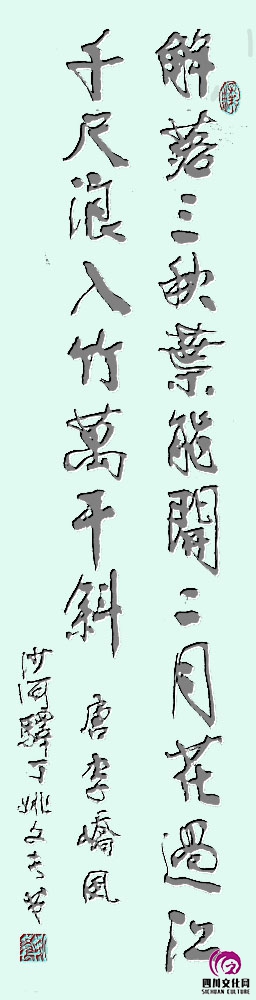 解落三秋葉能開二月花過江
千尺浪入竹萬干斜
唐李嶠風
沙河驛丁姚文
四川文化网
SICHUAN CULTURE